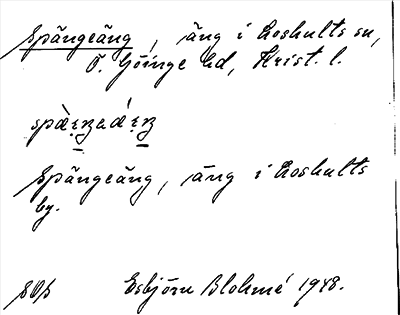 Spångeäng, äng i Loshults sn,
Ö. Göinge hd, Krist. l.
Spångeäng, äng i Loshults
by.
Esbjörn Blohmé 1948.